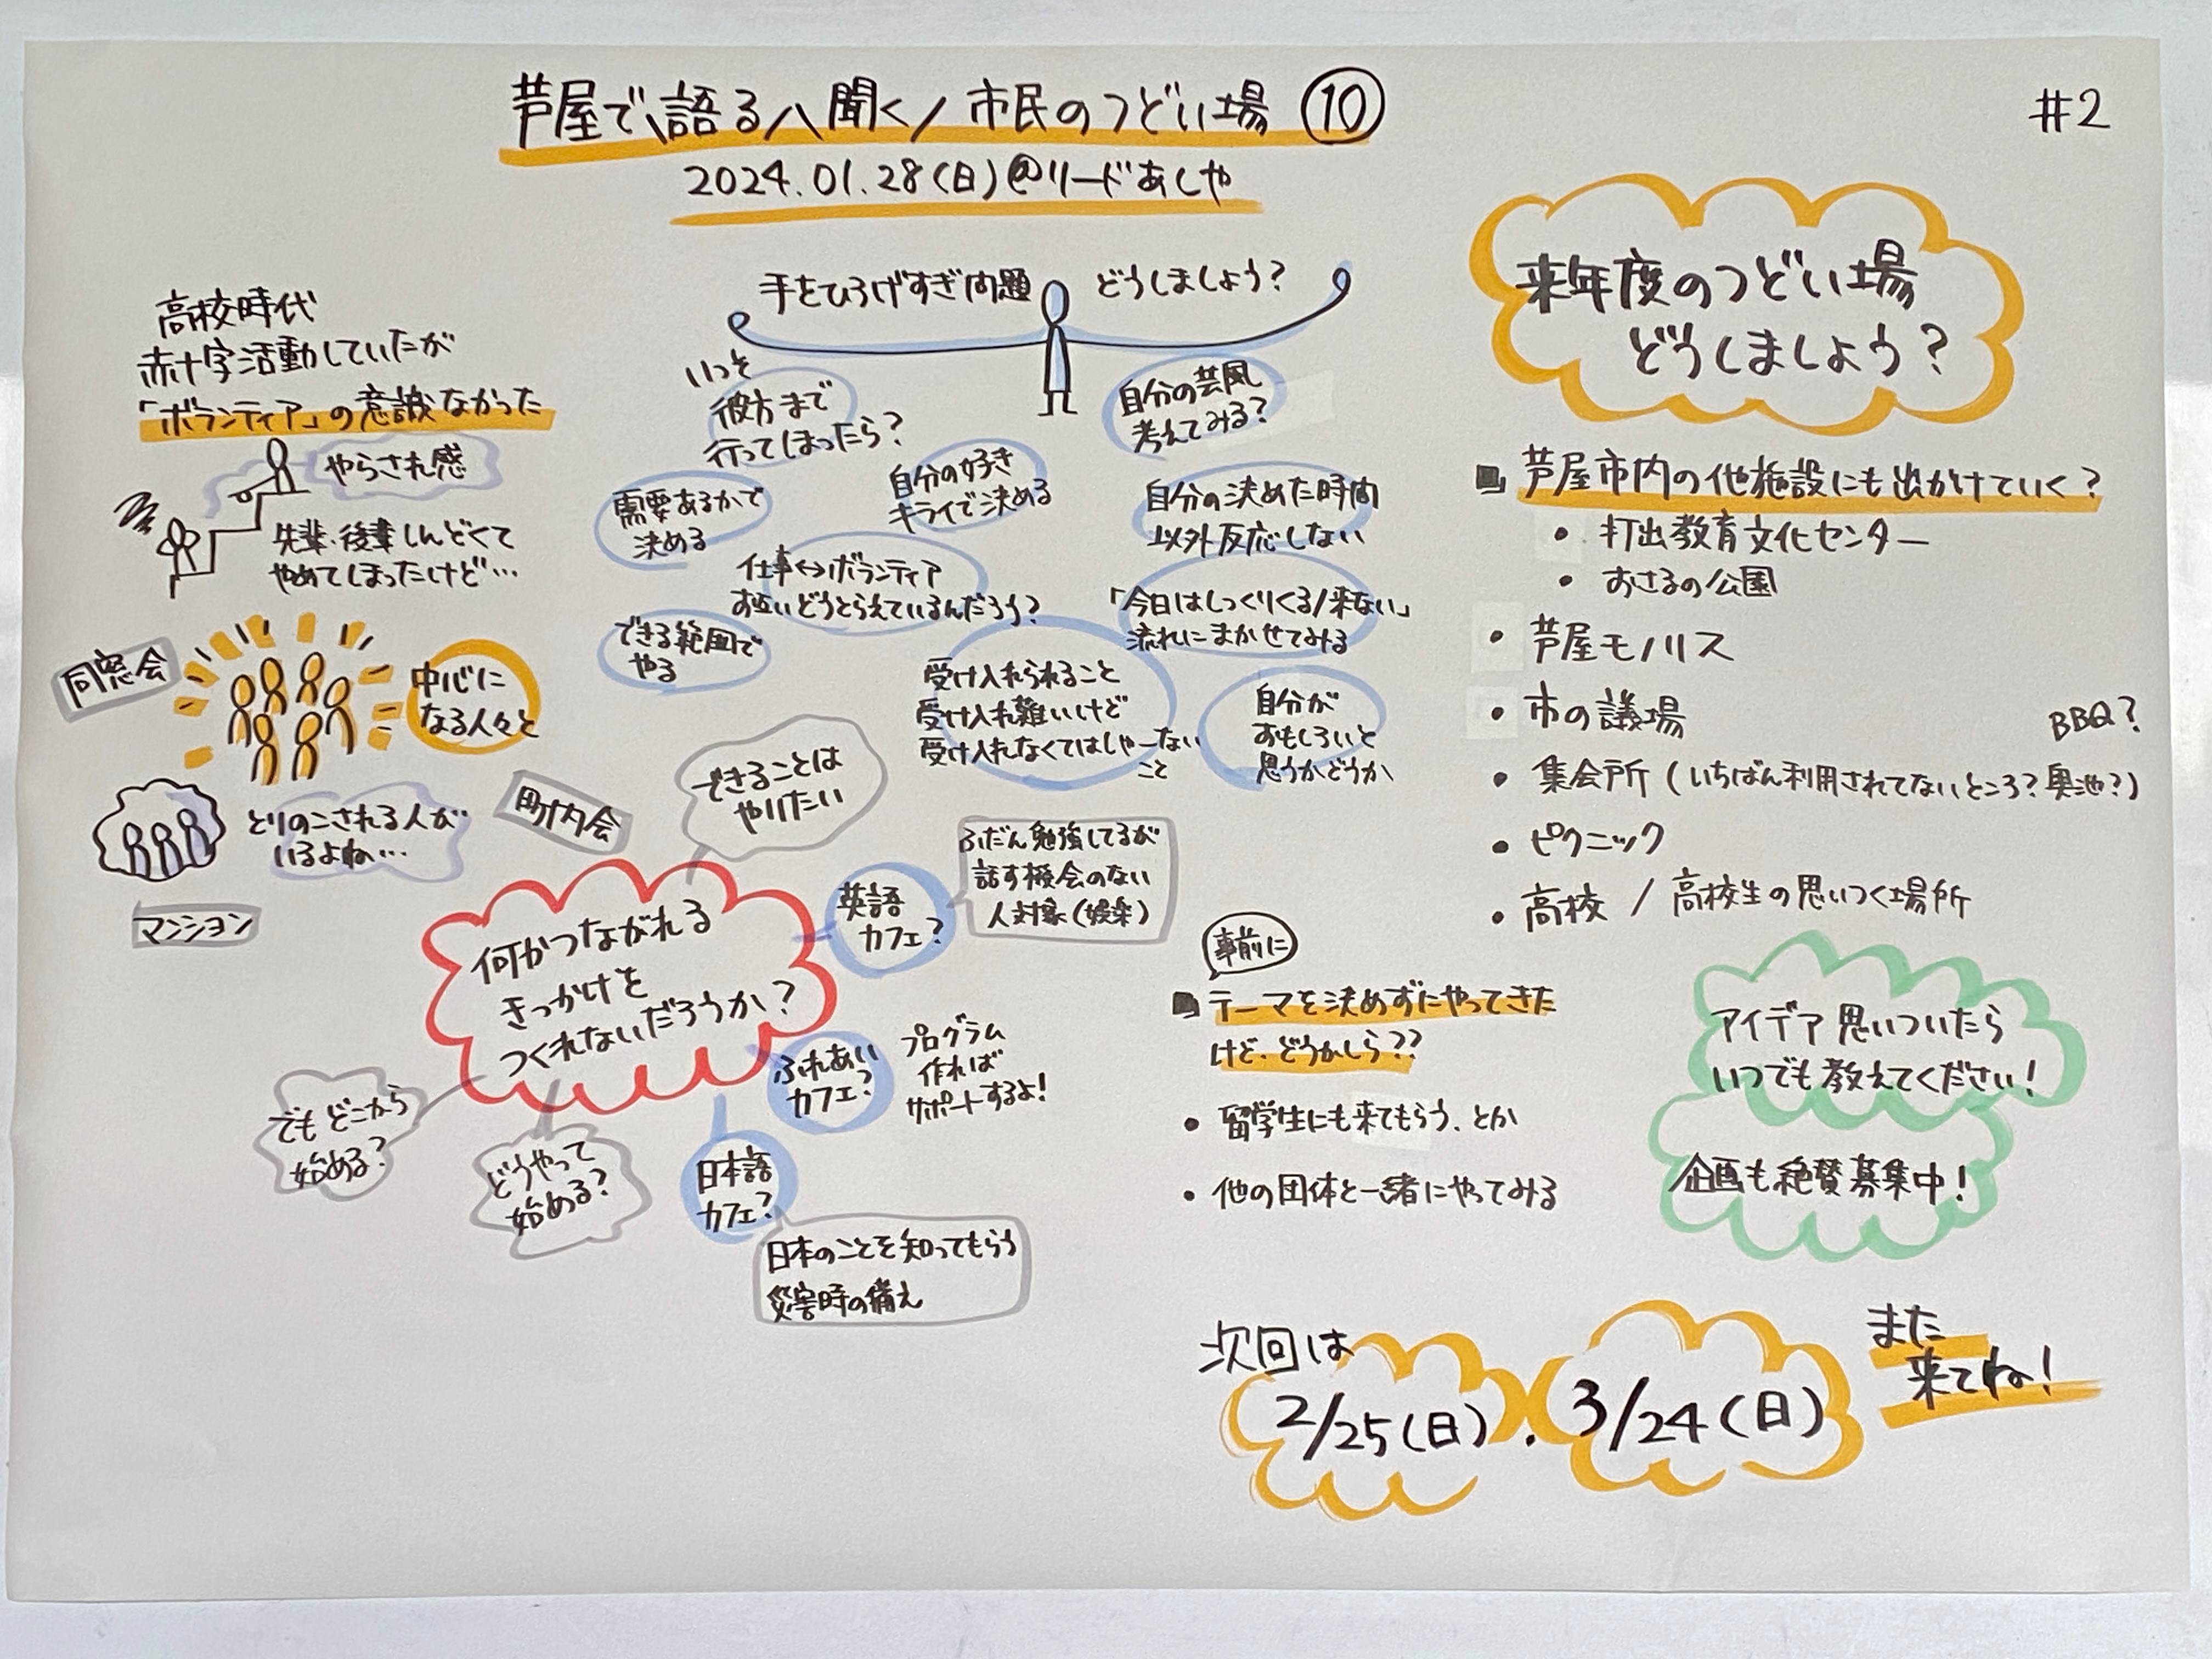 芦屋で\語る/\聞く/市民のつどい場 ⑩
2024.01.28(日)@リードあしや
#2
高校時代
赤十字活動していたが
「ボランティア」の意識なかった
やらされ感
先輩・後輩しんどくて
やめてしまったけど…
同窓会
中心に
なる人々と
とりのこされる人が
いるよね…
町内会
マンション
手をひろげすぎ問題 どうしましょう?
いっそ
彼方まで
行ってしまったら?
自分の芸風
考えてみる?
需要あるかで
決める
自分の好き
キライで決める
自分の決めた時間
以外反応しない
仕事↔ボランティア
お互いどうとらえているんだろう?
「今日はしっくりくる/来ない」
流れにまかせてみる
できる範囲で
やる
受け入れられること
受け入れ難いけど
受け入れなくてはしゃーない
こと
自分が
おもしろいと
思うかどうか
できることは
やりたい
何かつながれる
きっかけを
つくれないだろうか?
英語
カフェ?
ふだん勉強してるが
話す機会のない
人対象(娯楽)
ふれあい
カフェ?
プログラム
作れば
サポートするよ!
日本語
カフェ?
日本のことを知ってもらう
災害時の備え
でもどこから
始める?
どうやって
始める?
来年度のつどい場
どうしましょう?
■ 芦屋市内の他施設にも出かけていく?
• 打出教育文化センター
• おさるの公園
• 芦屋モノリス
• 市の議場
BBQ?
• 集会所(いちばん利用されてないところ?奥池?)
• ピクニック
• 高校/高校生の思いつく場所
事前に
■ テーマを決めずにやってきた
けど、どうかしら??
• 留学生にも来てもらう、とか
• 他の団体と一緒にやってみる
アイデア思いついたら
いつでも教えてください!
企画も絶賛募集中!
次回は
2/25(日)、3/24(日)
また
来てね!